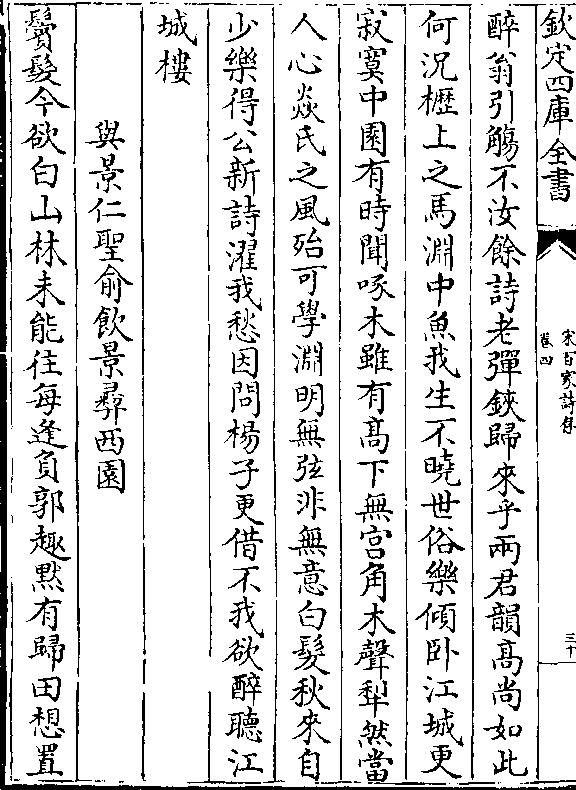 欽定四庫全書
宋百家詩存
卷四
三十
醉翁引觴不汝餘詩老彈鋏歸來乎兩君韻髙尚如此
何況櫪上之馬淵中魚我生不曉世俗樂傾卧江城更
寂寞中園有時聞啄木雖有髙下無宫角木聲犁然當
人心焱氏之風殆可學淵明無弦非無意白髮秋來自
少樂得公新詩濯我愁因問楊子更借不我欲醉聽江
城樓
與景仁聖俞飲景彛西園
鬢髮今欲白山林未能往每逢負郭趣黙有歸田想置